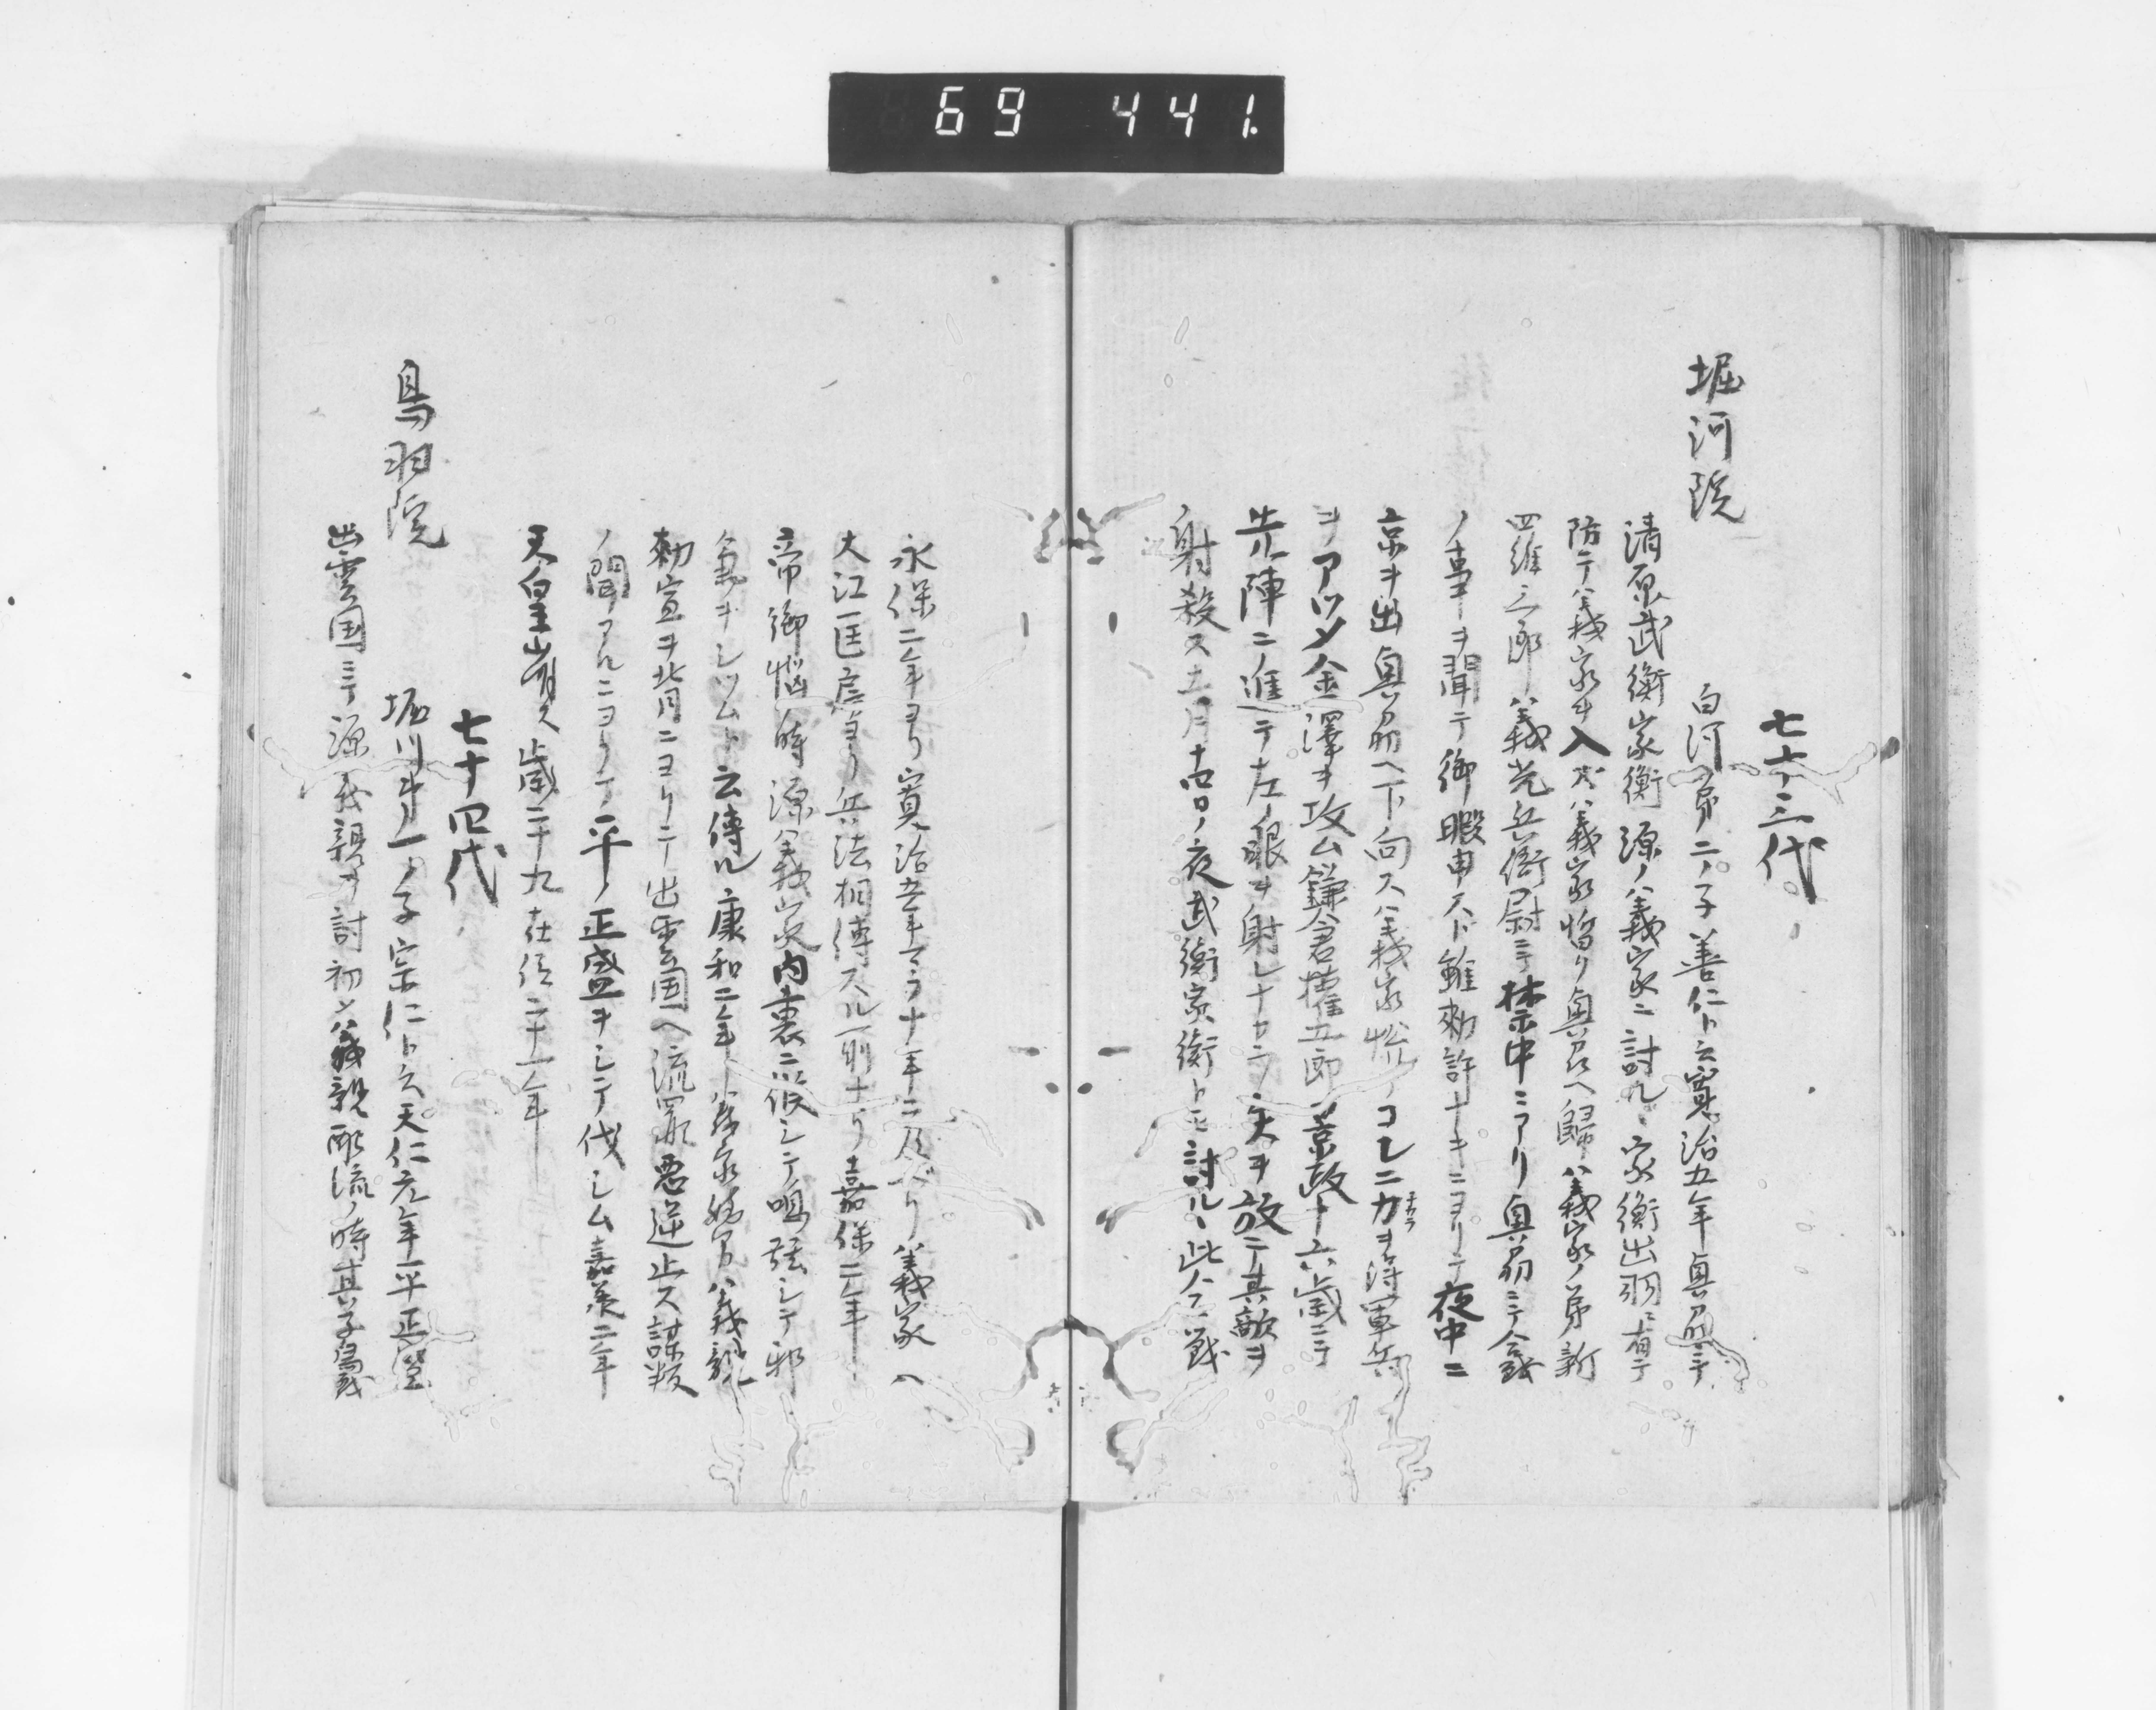 69 441
七十三代
堀河院
白河第二ノ子善仁ト云寛治五年奥州ニテ
清原武衡家衡源ノ義家ニ討ル家衡出羽ニ有テ
防テ義家ヲ入ス義家怒リ奥州ヘ歸義家ノ弟新
羅三郎義光兵衛尉ニテ禁中ニアリ奥州ニテ合戦
ノ事ヲ聞テ御暇申スト雖勅許ナキニヨリテ夜中ニ
京ヲ出奥州ヘ下向ス義家悦ノコレニ力ヲ得軍兵
ヲアツメ金澤ヲ攻ム鎌倉権五郎景政十六歳ニテ
先陣ニ進テ左ノ眼ヲ射レナカラ矢ヲ放テ其敵ヲ
射殺ス十一月十四日ノ夜武衡家衡トモ討ル此合戦
永保二年ヨリ寛治五年マテ十年ニ及ベリ義家ハ
大江匡房ヨリ兵法相傳スル所ナリ嘉保二年
帝御悩ノ時源義家内裏ニ伺候シテ鳴弦シテ邪
氣ヲシツムト云傳ル康和二年義家嫡男義親
勅宣ヲ背ニヨリテ出雲国ヘ流罪悪逆止ス謀叛
ノ聞アルニヨリテ平ノ正盛ヲシテ伐シム嘉承二年
天皇崩ス歳二十九在位二十一年
七十四代
鳥羽院
堀川第一ノ子宗仁ト云天仁元年平正盛
出雲国ニテ源義親ヲ討初メ義親配流ノ時其子為義